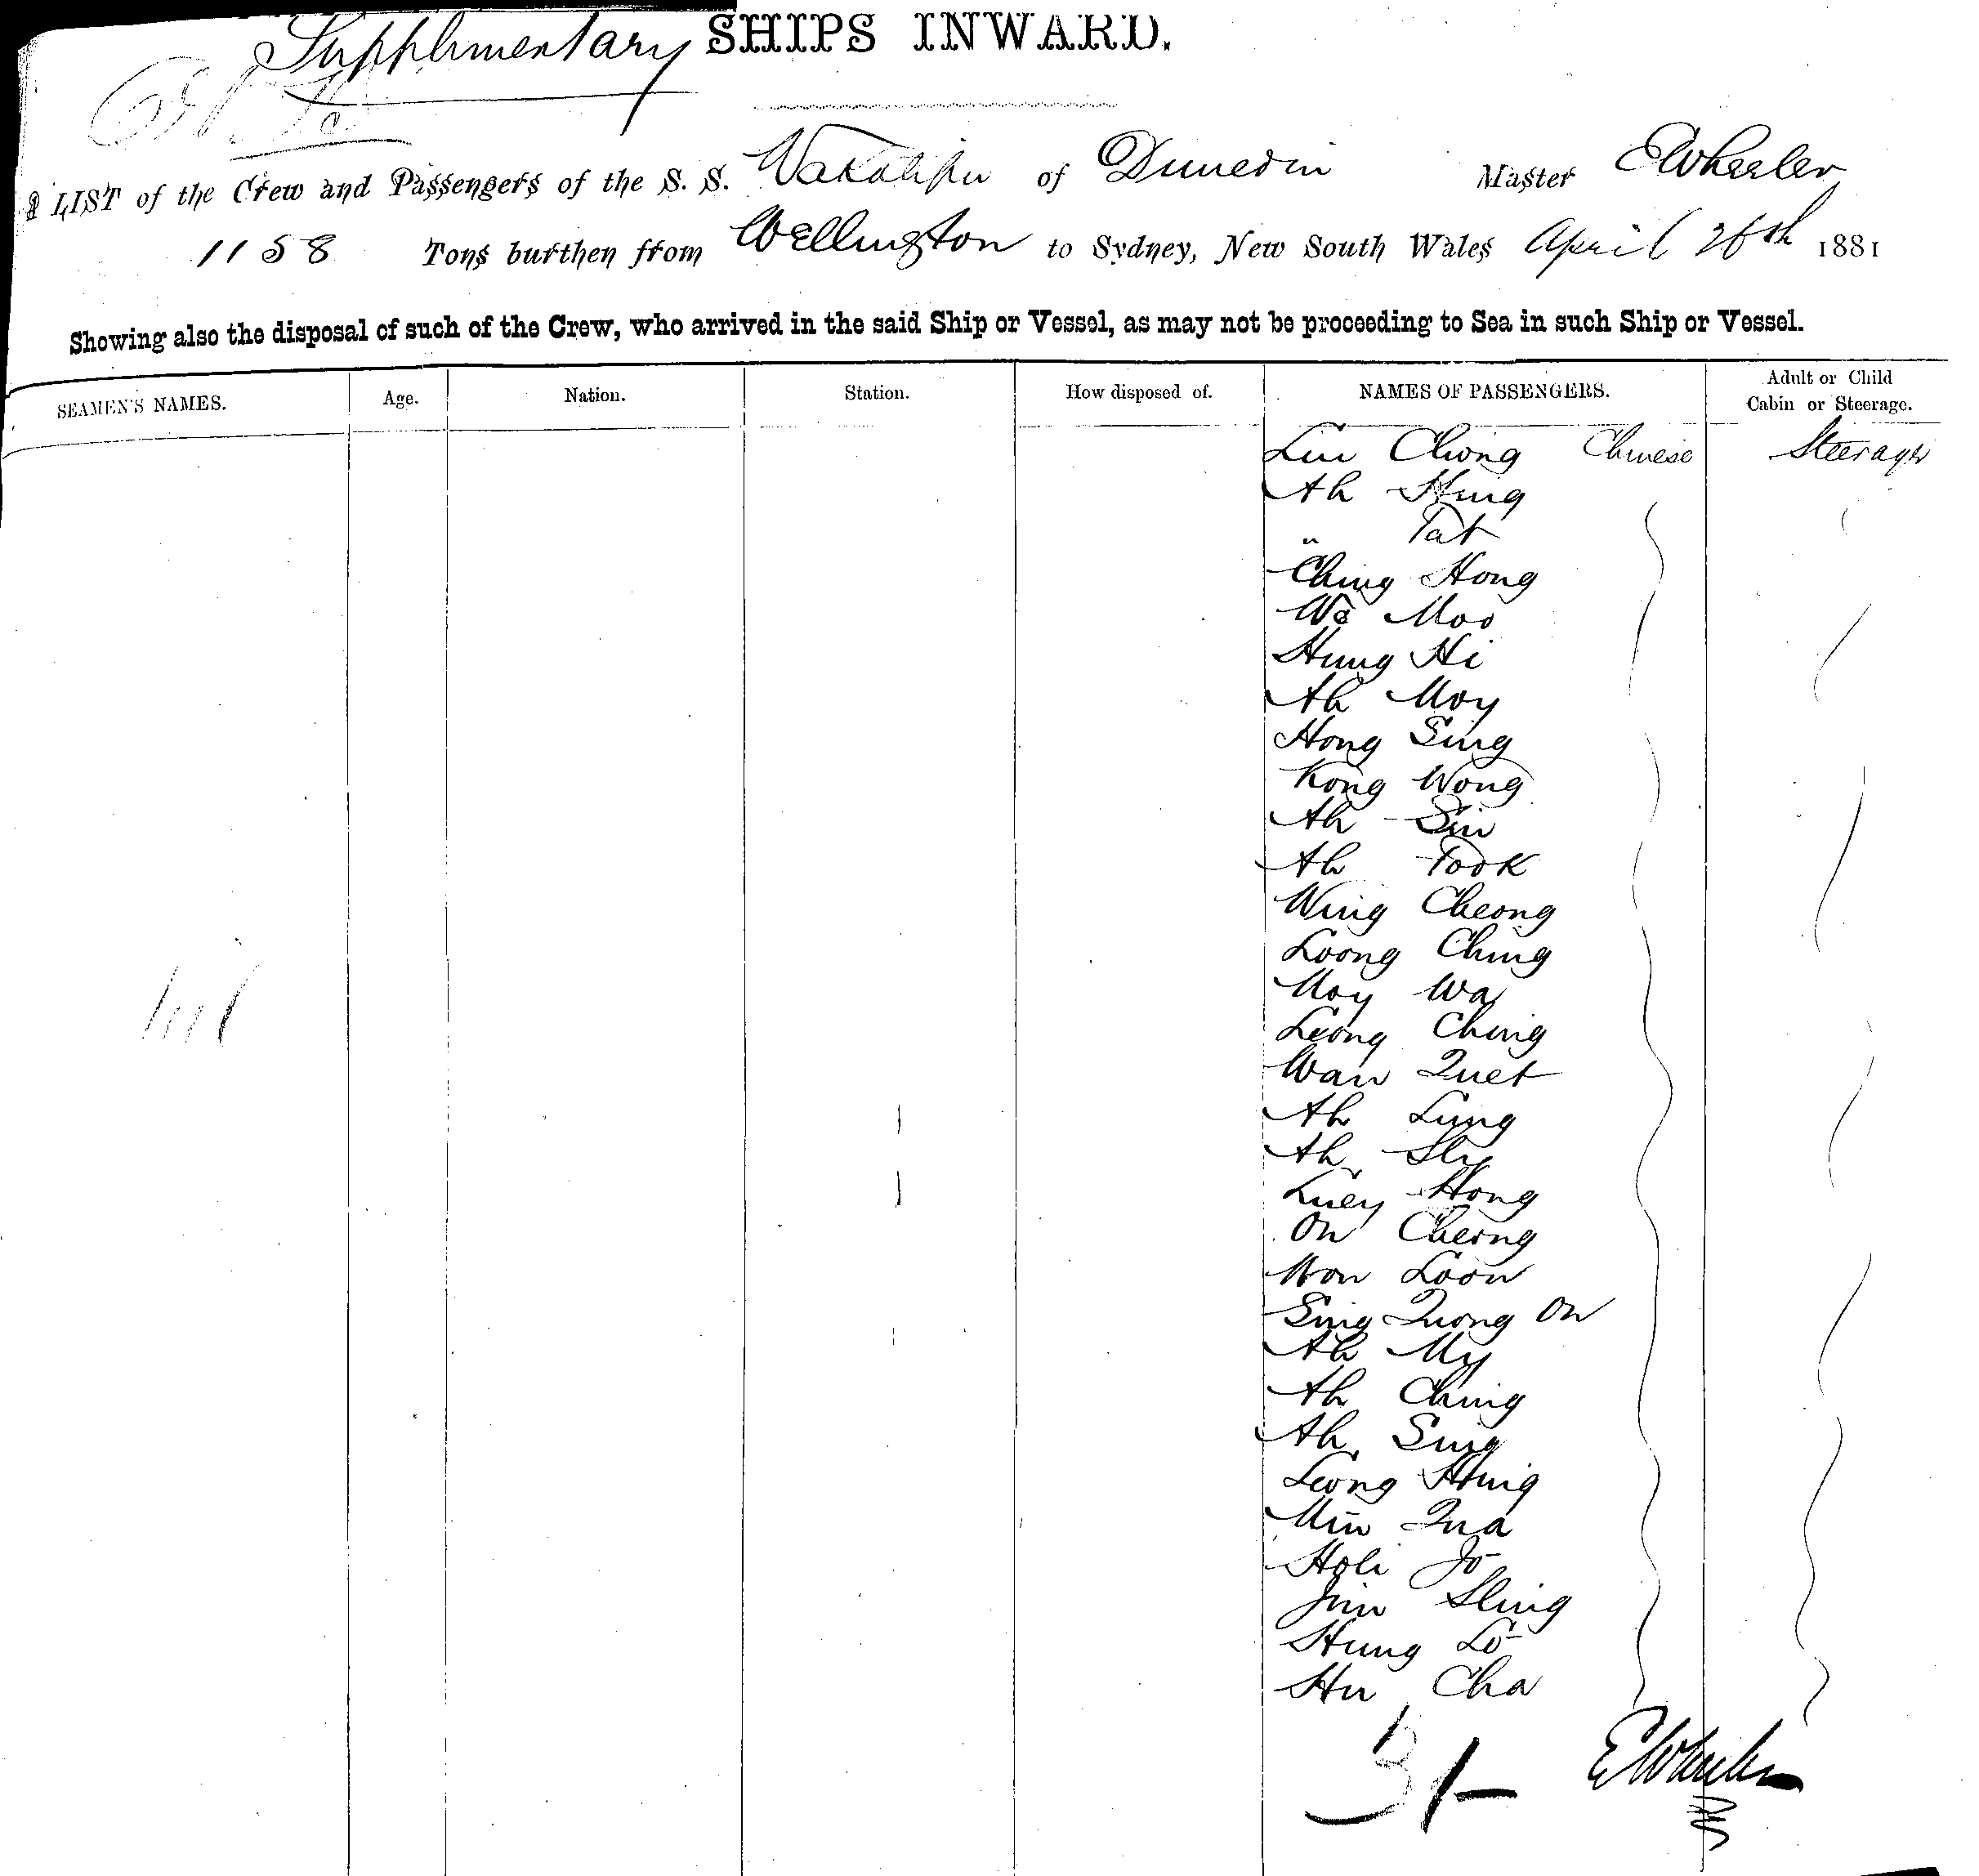 Supplimentary SHIPS INWARD.
A LIST of the Crew and Passengers of the S. S. Wakatipu of Dunedin Master E Wheeler
1158 Tons burthen from Wellington to Sydney, New South Wales April 26th 1881
Showing also the disposal of such of the Crew, who arrived in the said Ship or Vessel, as may not be proceeding to Sea in such Ship or Vessel.
SEAMEN'S NAMES. Age. Nation. Station. How disposed of. NAMES OF PASSENGERS. Adult or Child
Cabin or Steerage.
Lin Chong Chinese Steerage
Ah Hing
" Tat
Ching Hong
Wo Moo
Hung Hi
Ah Moy
Hong Sing
Kong Wong
Ah Sin
Ah Took
Wing Cheong
Loong Ching
Moy Wa
Leong Ching
Wan Quet
Ah Lung
Ah Sly
Luey Hong
On Cheong
Won Loon
Sing Quong On
Ah My
Ah Ching
Ah Sing
Leong Hing
Min Qua
Holi Jo
Jim Sling
Hung Lo
Hu Cha
31
E Wheeler